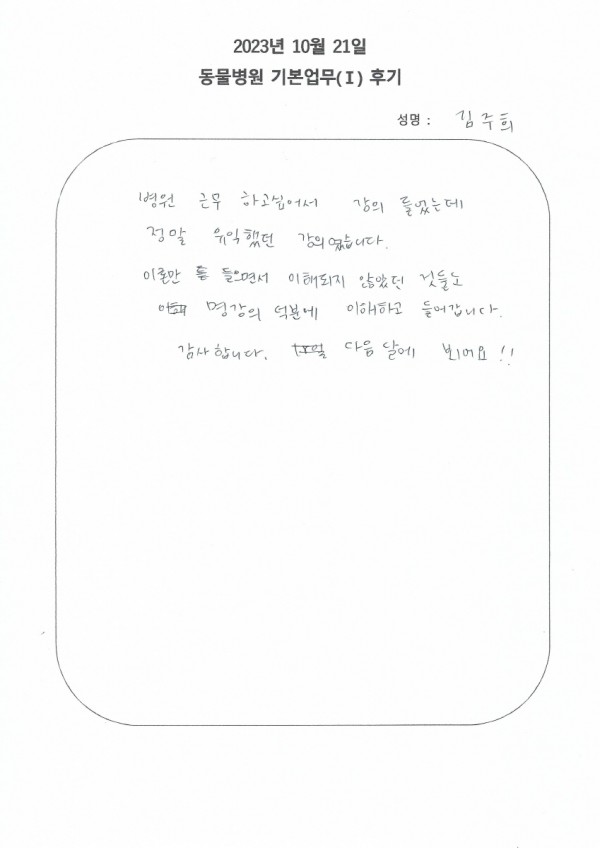 2023년 10월 21일
동물병원 기본업무(Ⅰ) 후기
성명 : 김주희
병원 근무 하고싶어서 강의 들었는데
정말 유익했던 강의였습니다.
이론만 들으면서 이해되지 않았던 것들도
명강의 덕분에 이해하고 들어갑니다.
감사합니다. 다음 달에 뵈어요!!